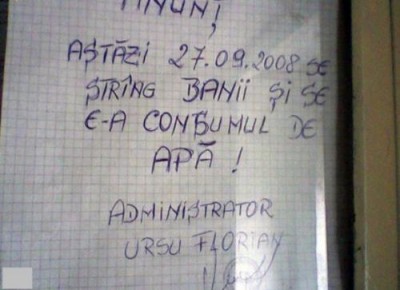 ANUNȚ
AȘTĂZI 27.09.2008 SE
ȘTRÎNG BANII ȘI SE
E-A CONSUMUL DE
APĂ !
ADMINIȘTRATOR
URSU FLORIAN